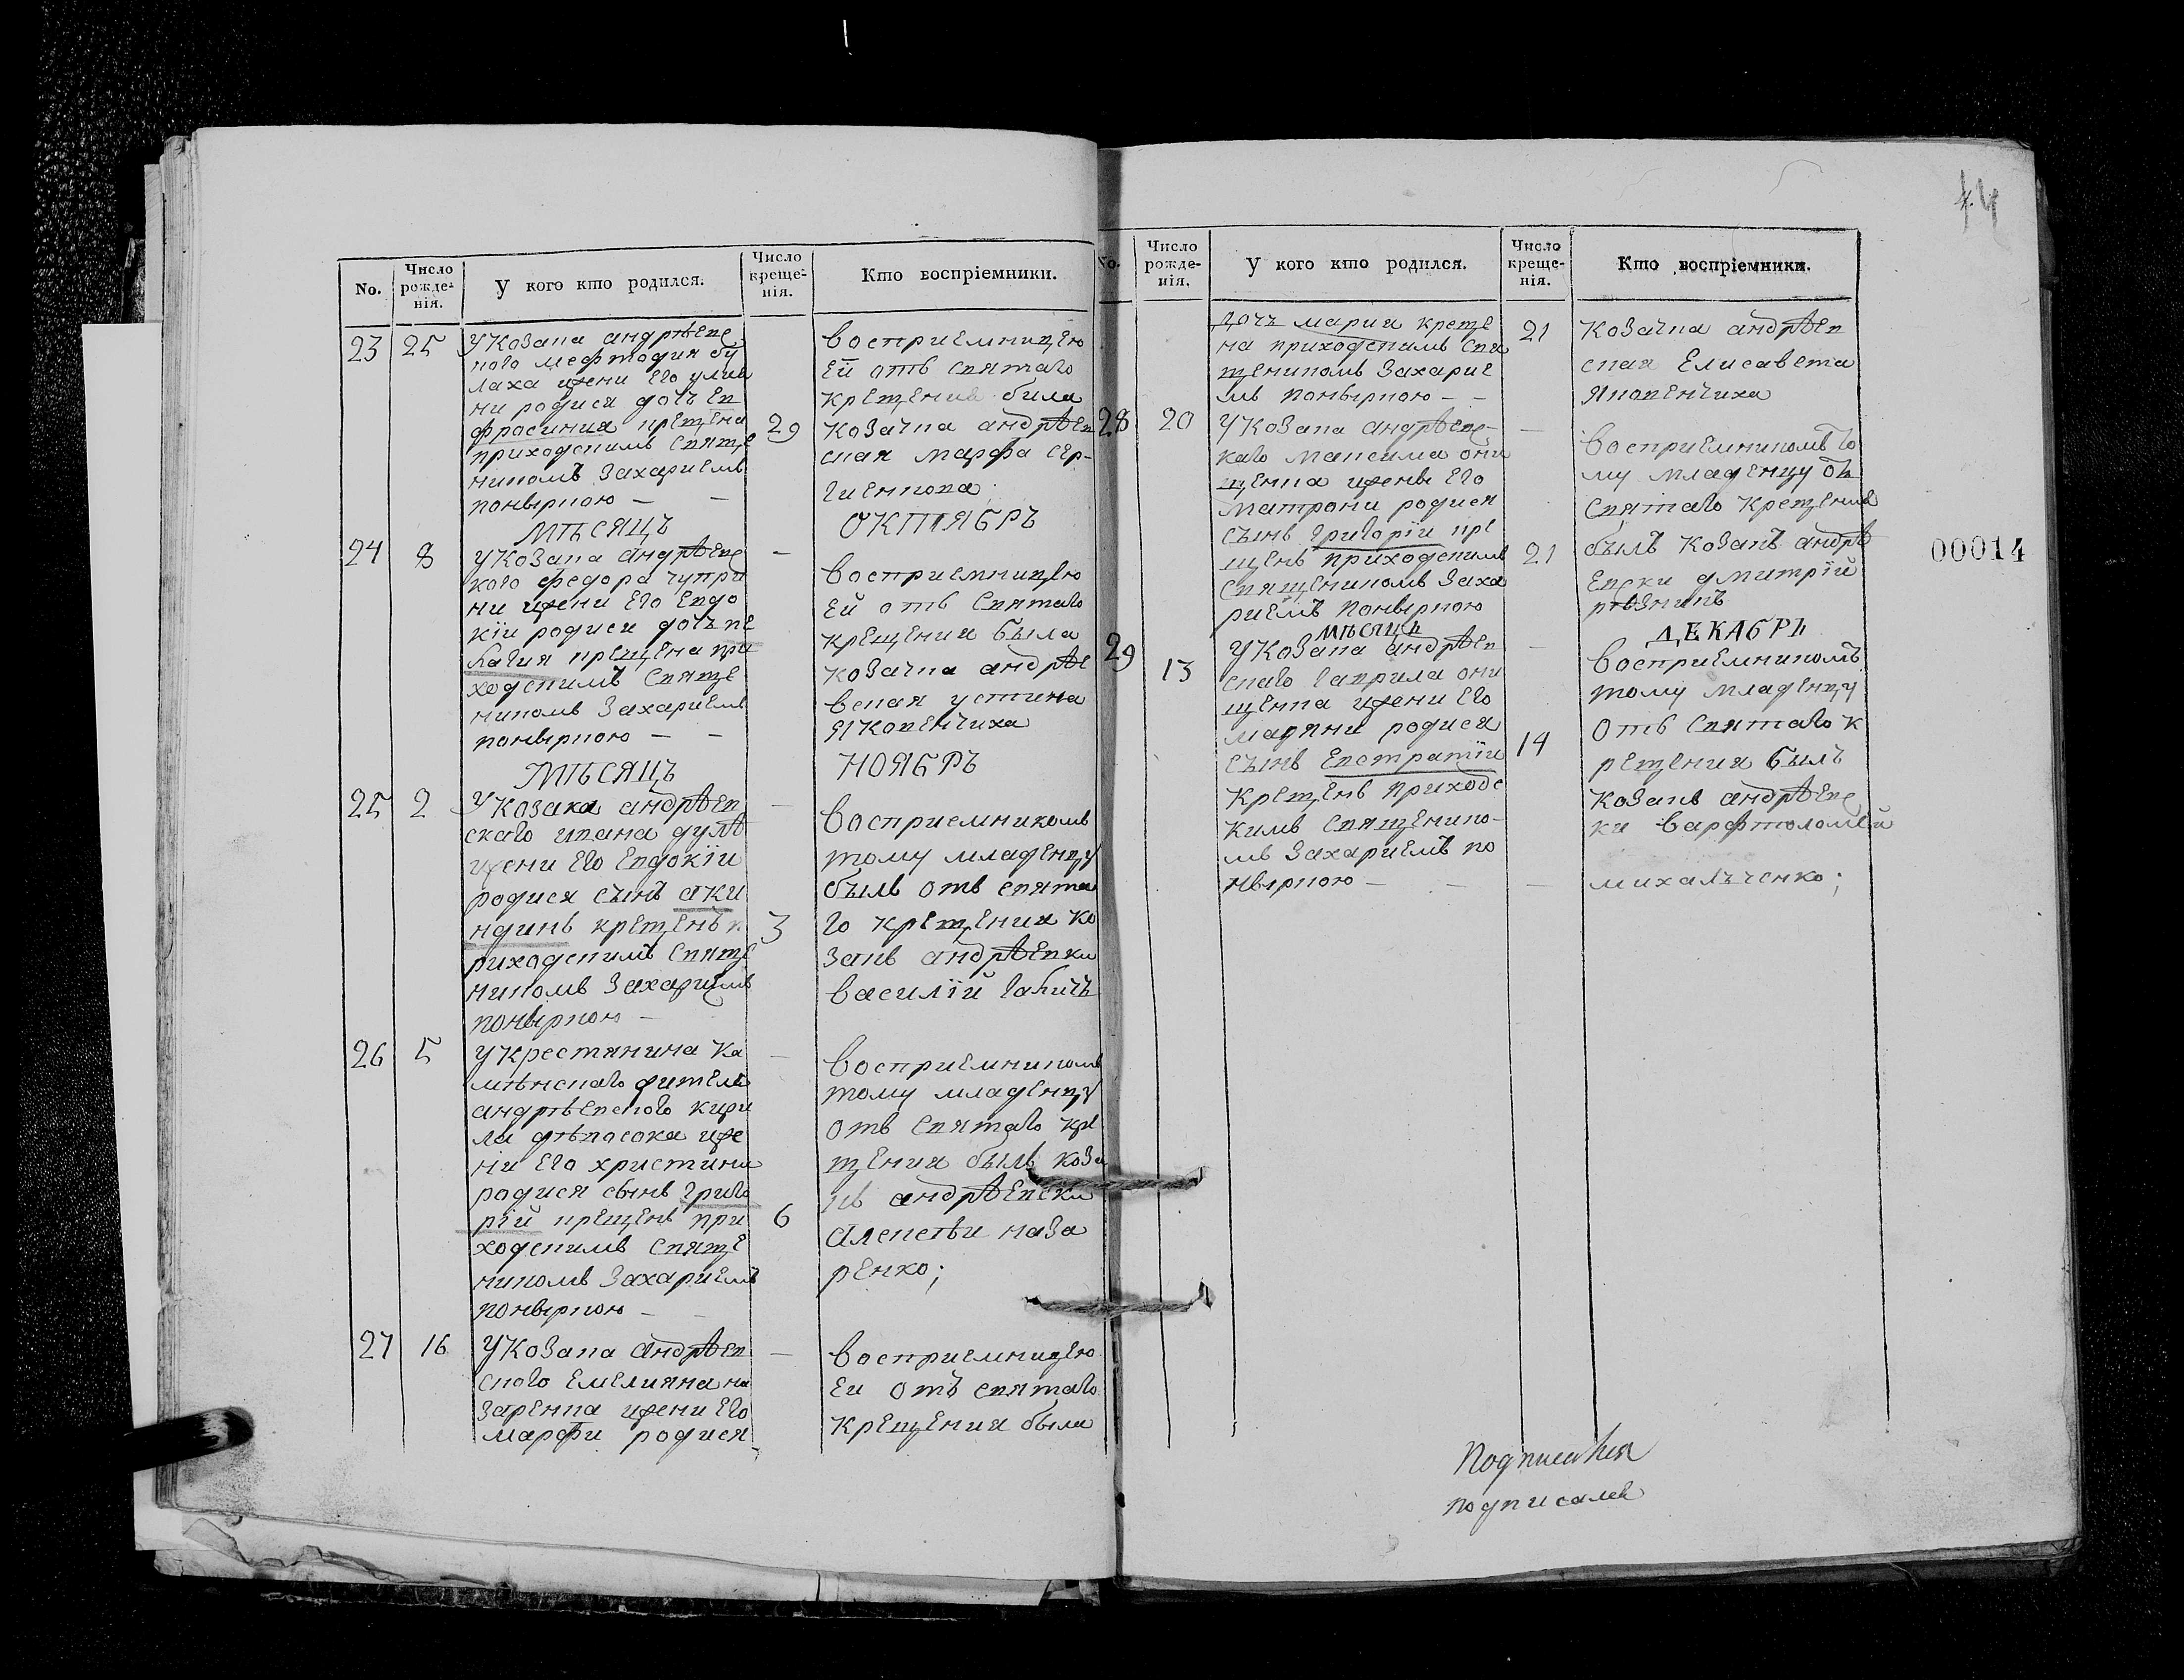 14
No.
Число рожде-нія.
У кого кто родился.
Число креще-нія.
Кто воспріемники.
23
25
У козака андрѣевс
кого мефтодия бу
лаха ижени его улия
ни родися дочъ ев
фросиния крещена
приходскимъ свяще
никомъ Захариемъ
понѣркою — —
29
восприемницею
ей отъ святаго
крещения била
козачка андрѣев
ская марфа сер-
гиенкова;
МѢСЯЦЪ
ОКТЯБРЪ
24
8
У козака андрѣевс
кого федора чупри
ни ижени его евдо
кіи родися дочъ пе
лагия крещена при
ходскимъ свяще
никомъ Захариемъ
понѣркою — —
—
восприемницею
ей отъ святаго
крещения была
козачка андрѣе
вская устина
Яковенчиха
МѢСЯЦЪ
НОЯБРЪ
25
2
У козака андрѣев
скаго ивана
ижени его евдокіи
родися сынъ аки
ндинъ крещенъ п
риходскимъ свяще
никомъ Захариемъ
понѣркою —
—
3
восприемникомъ
тому младенцу
былъ отъ свята
го крещения ко
закъ андрѣевки
василій
26
5
У крестянина ка
мѣнскаго жителя
андрѣевского кири
ла иже
ни его христини
родися сынъ григо
рій крещенъ при
ходскимъ свяще
никомъ Захариемъ
понѣркою — —
—
6
восприемникомъ
тому младенцу
отъ святаго кре
щения былъ коза
къ андрѣевски
алексѣи наза
ренко;
27
16
У козака андрѣев
ского емелияна на
заренка ижени его
марфи родися
—
восприемницею
еи отъ святаго
крещения была
No.
Число рожде-нія.
У кого кто родился.
Число креще-нія.
Кто воспріемники.
дочъ мария креще
на приходскимъ свя
щеникомъ Захарие
мъ понѣркою — —
21
козачка андрѣев
ская Елисавета
Яковенчиха
28
20
У козака андрѣевс-
каго максима они
щенка ижены его
матрони родися
сынъ григорїи кре
щенъ приходскимъ
священикомъ Заха
риемъ понѣркою
—
21
восприемникомъ то
му младенцу отъ
святаго крещения
былъ козакъ андрѣ
евски дмитрїй
рѣзникъ
МѢСЯЦЪ
ДЕКАБРЪ
29
13
У козака андрѣев
скаго гаврила они
щенка ижени его
маряни родися
сынъ евстратїи
крещенъ приходс
кимъ священико-
мъ Захариемъ по
нѣркою — — —
—
14
восприемникомъ
тому младенцу
отъ святаго к
рещения былъ
козакъ андрѣевс
ки варфтоломѣй
михалъченко;
00014
подписалъ